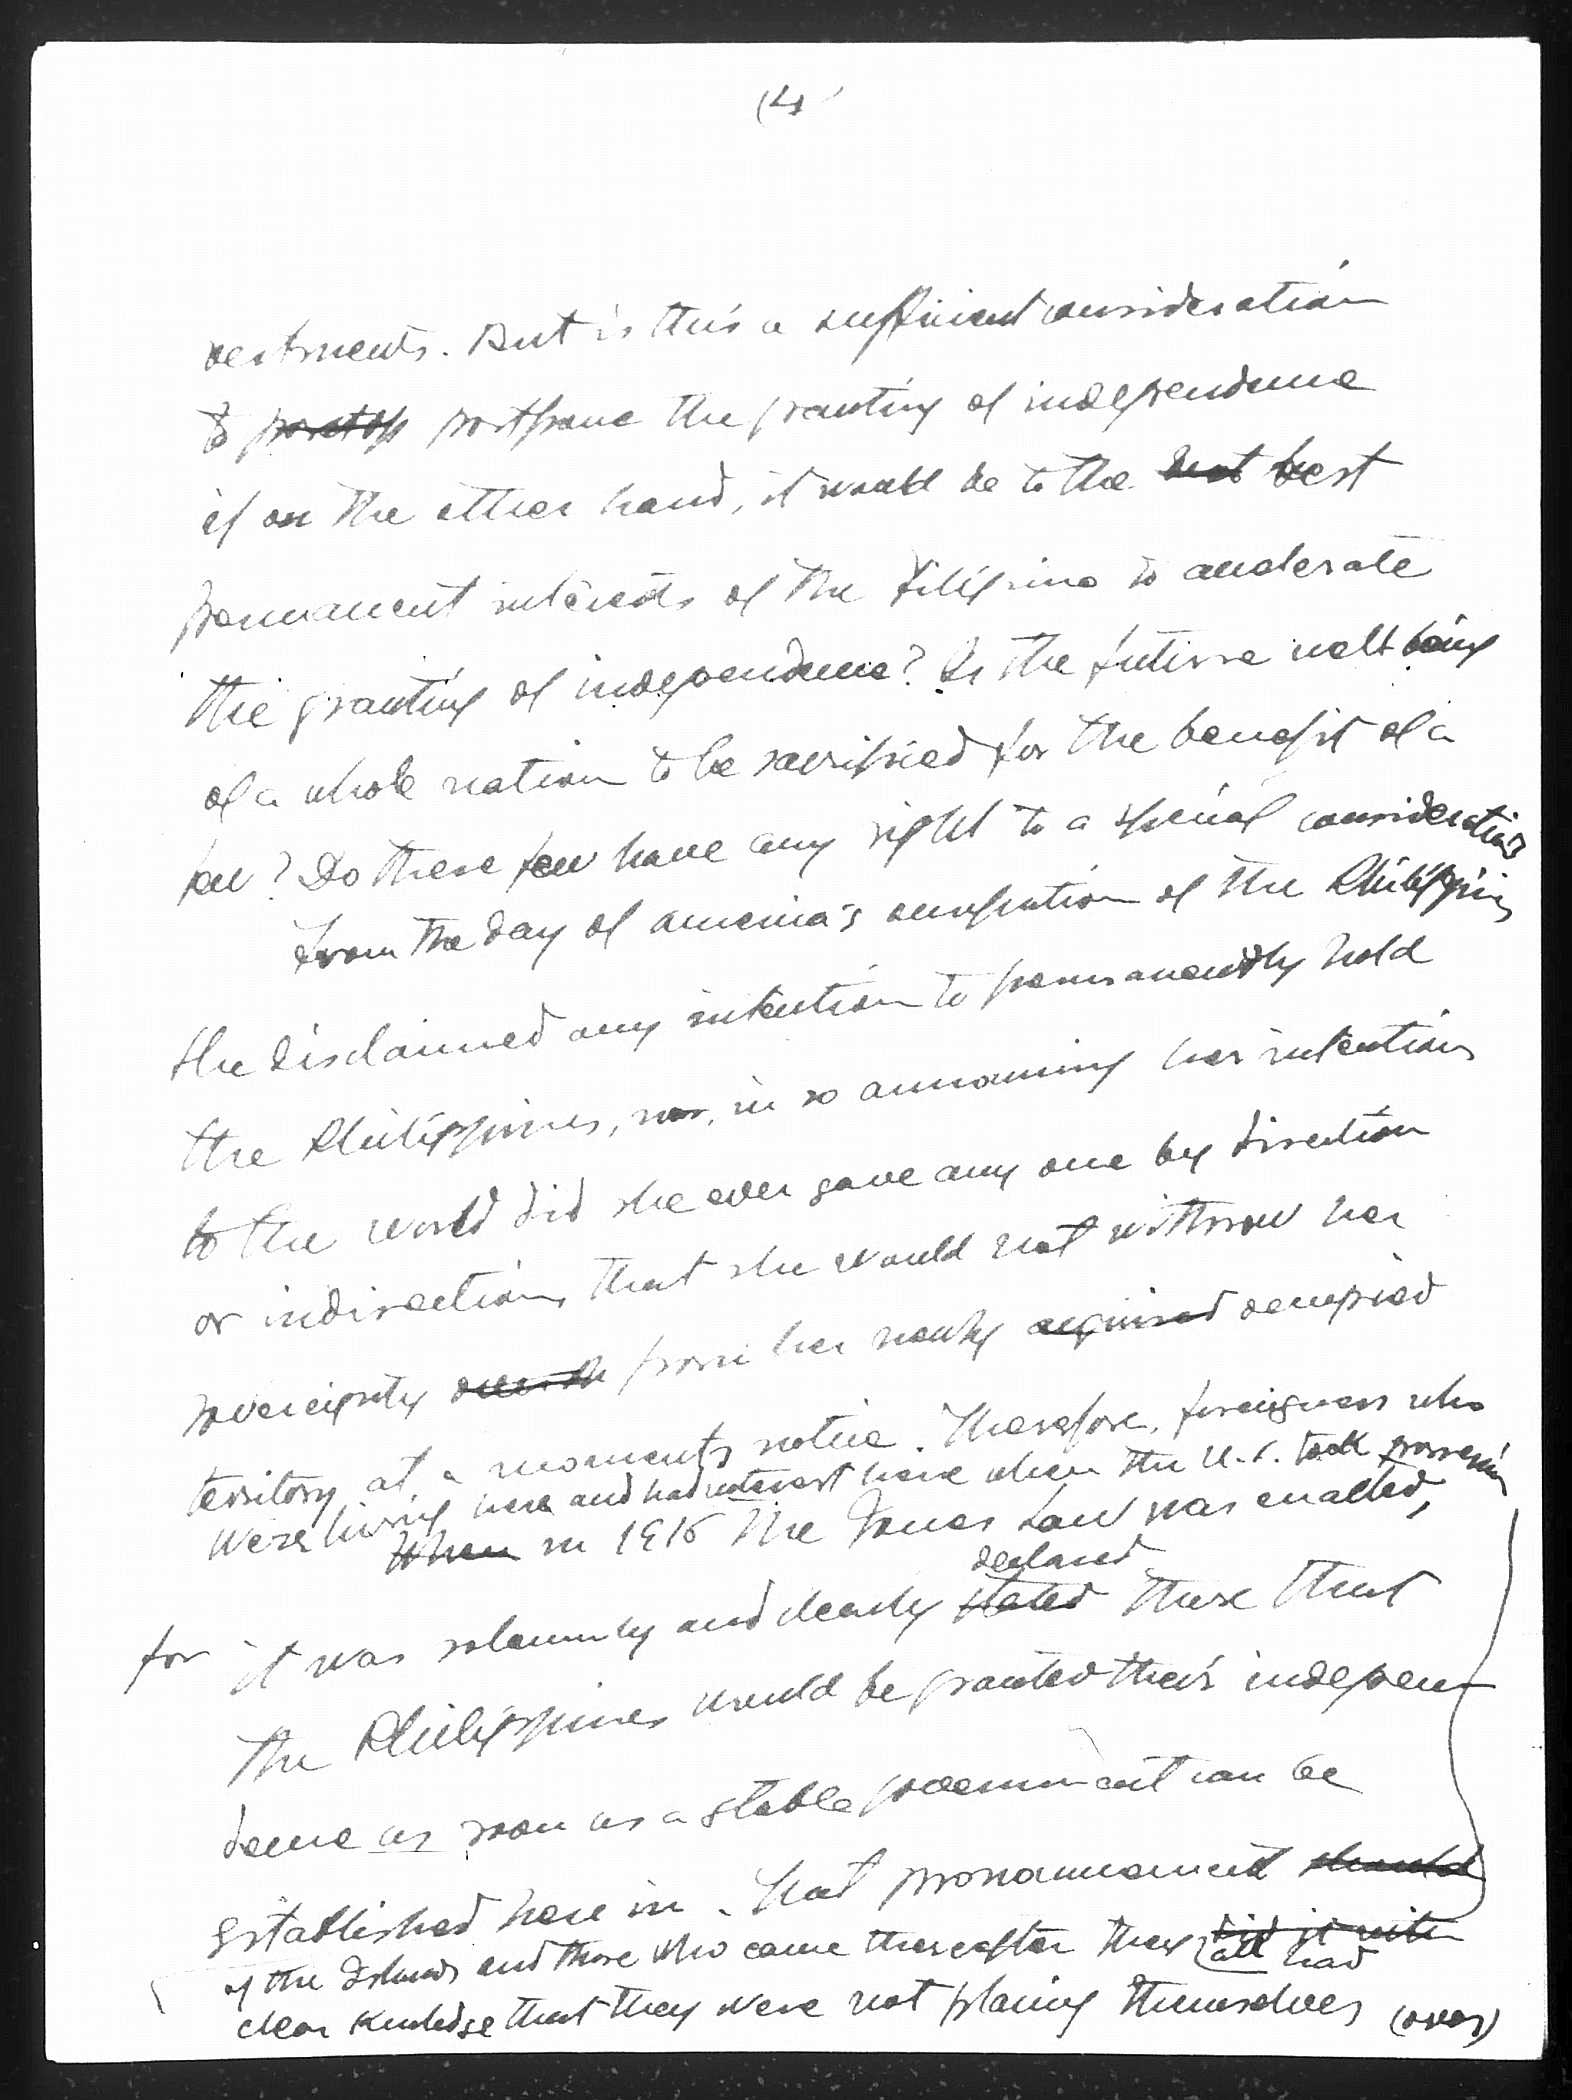 (4)
vestments. But is this a sufficient consideration
to postop postpone the granting of independence
if on the other hand, it would be to the best best
permanent interests of the Filipino to accelerate
the granting of independence? Is the future well being
of a whole nation to be sacrificed for the benefit of a
few? Do these few have any right to a special consideration?
From the day of America's occupation of the Philippines
she disclaimed any intention to permanently hold
the Philippines, nor, in so announcing her intentions
to the world did she ever gave any one by direction
or indirection, that she would not withdraw her
sovereignty from her newly acquired occupied
territory at a moments notice. Therefore, foreigners who
were living here and had interest here when the U.S. took possession
When in 1916 the Jones Law was enacted,
declared
for it was solemnly and clearly stated there that
the Philippines would be granted their indepen-
dence as soon as a stable government can be
established here in. That pronouncement should
of the Islands and those who came thereafter they did it with
all had
clear knowledge that they were not placing themselves (over)